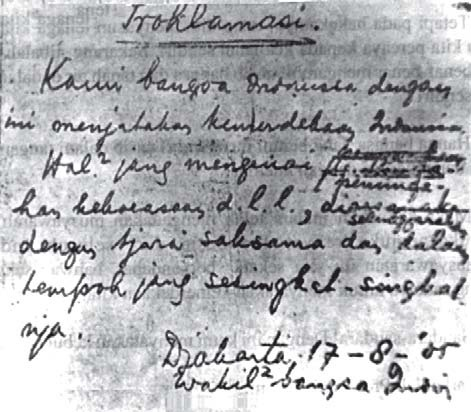 Proklamasi.
Kami bangsa Indonesia dengan
ini menjatakan kemerdekaan Indonesia.
Hal² jang mengenai
peminda-
han kekoeasaan d.l.l., diselenggarakan
dengan tjara saksama dan dalam
tempoh jang sesingkat-singkat
nja.
Djakarta 17-8-'05
Wakil² bangsa Indon